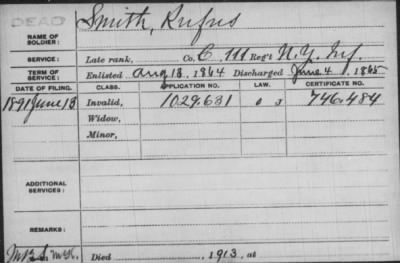 DEAD
Smith, Rufus
NAME OF SOLDIER:
SERVICE: Late rank, Co. C, 111 Reg't N.Y. Inf.
TERM OF SERVICE: Enlisted Aug 13, 1864 Discharged June 4, 1865
DATE OF FILING. CLASS. APPLICATION NO. LAW. CERTIFICATE NO.
1891 June 13 Invalid, 1029.631 746.484
Widow,
Minor,
ADDITIONAL SERVICES:
REMARKS:
Died , 1913, at